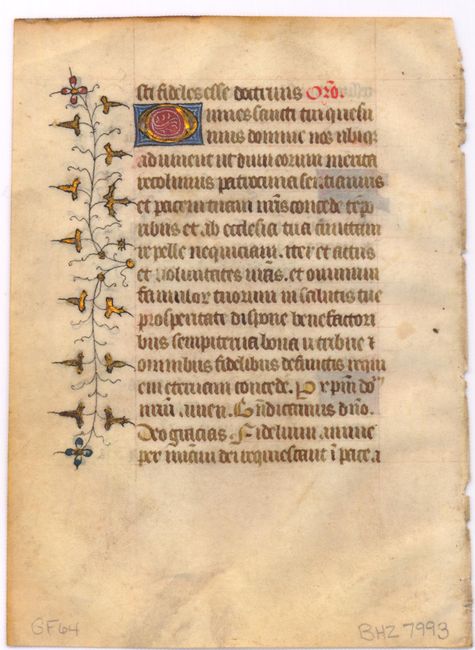 sti fideles esse doctrinis Oro.
Omnes sancti tui quesu
mus domine nos ubiq
adiuuent ut dum eorum merita
recolimus patrocinia sentiamus
et pacem tuam nris concede tepo
ribus et ab ecclesia tua cunctam
repelle nequiciam. iter et actus
et voluntates nras. et omnium
famulor tuorum in salutis tue
prosperitate dispone benefactori
bus sempiterna bona retribue et
omnibus fidelibus defunctis requi
em eternam concede. Per xpm do
num. amen. Benedicamus dno.
Deo gracias. Fidelium anime
per miam dei requiescant i pace. a
GF64
BHZ 7993